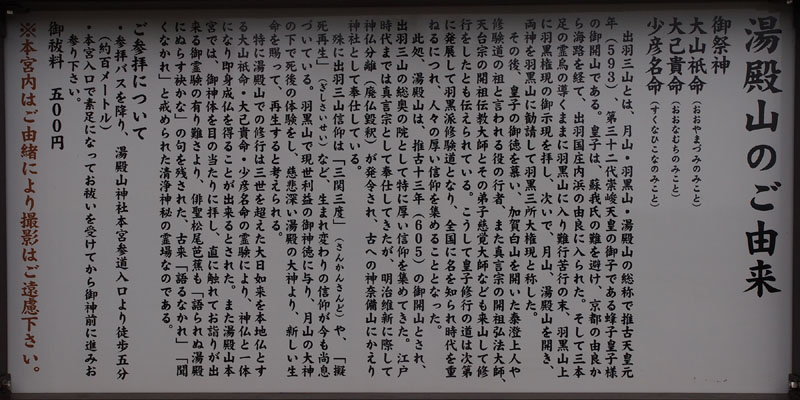 湯殿山のご由来
御祭神
大山祇命（おおやまづみのみこと）
大己貴命（おおなむちのみこと）
少彦名命（すくなひこなのみこと）
出羽三山とは、月山・羽黒山・湯殿山の総称で推古天皇元
年（593）、第三十二代崇峻天皇の御子である蜂子皇子様
の御開山である。皇子は、蘇我氏の難を避け、京都の由良か
ら海路を経て、出羽国庄内浜の由良に入られた。そして三本
足の霊烏の導くままに羽黒山に入り難行苦行の末、羽黒山上
に羽黒権現の御示現を拝し、次いで、月山、湯殿山を開き、
両神を羽黒山に勧請して羽黒三所大権現と称した。
その後、皇子の御徳を慕い、加賀白山を開いた泰澄上人や
修験道の祖と言われる役の行者、また真言宗の開祖弘法大師、
天台宗の開祖伝教大師とその弟子慈覚大師なども来山して修
行をしたとも伝えられている。こうして皇子修行の道は次第
に発展して羽黒派修験道となり、全国に名を知られ時代を重
ねるにつれ、人々の厚い信仰を集めることとなった。
此処、湯殿山は、推古十三年（605）の御開山とされ、
出羽三山の総奥の院として特に厚い信仰を集めてきた。江戸
時代までは真言宗として奉仕してきたが、明治維新に際して
神仏分離（廃仏毀釈）が発令され、古への神奈備山にかえり
神社として奉仕している。
殊に出羽三山信仰は「三関三度」（さんかんさんど）や、「擬
死再生」（ぎしさいせい）など、生まれ変わりの信仰が今も尚息
づいている。羽黒山で現世利益の御神徳に与り、月山の大神
の下で死後の体験をし、慈悲深い湯殿の大神より、新しい生
命を賜って、再生すると考えられる。
特に湯殿山での修行は三世を超えた大日如来を本地仏とす
る大山祇命・大己貴命・少彦名命の霊験により、神仏と一体
になり即身成仏を得ることが出来るとされた。また湯殿山本
宮では、御神体を目の当たりに拝し、直に触れてお詣りが出
来る御霊験の有り難さより、俳聖松尾芭蕉も「語られぬ湯殿
にぬらす袂かな」の句を残された、古来「語るなかれ」「聞
くなかれ」と戒められた清浄神秘の霊場なのである。
ご参拝について
・参拝バスを降り、湯殿山神社本宮参道入口より徒歩五分
（約百メートル）
・本宮入口で素足になってお祓いを受けてから御神前に進みお
参り下さい。
御祓料　五〇〇円
※本宮内はご由緒により撮影はご遠慮下さい。